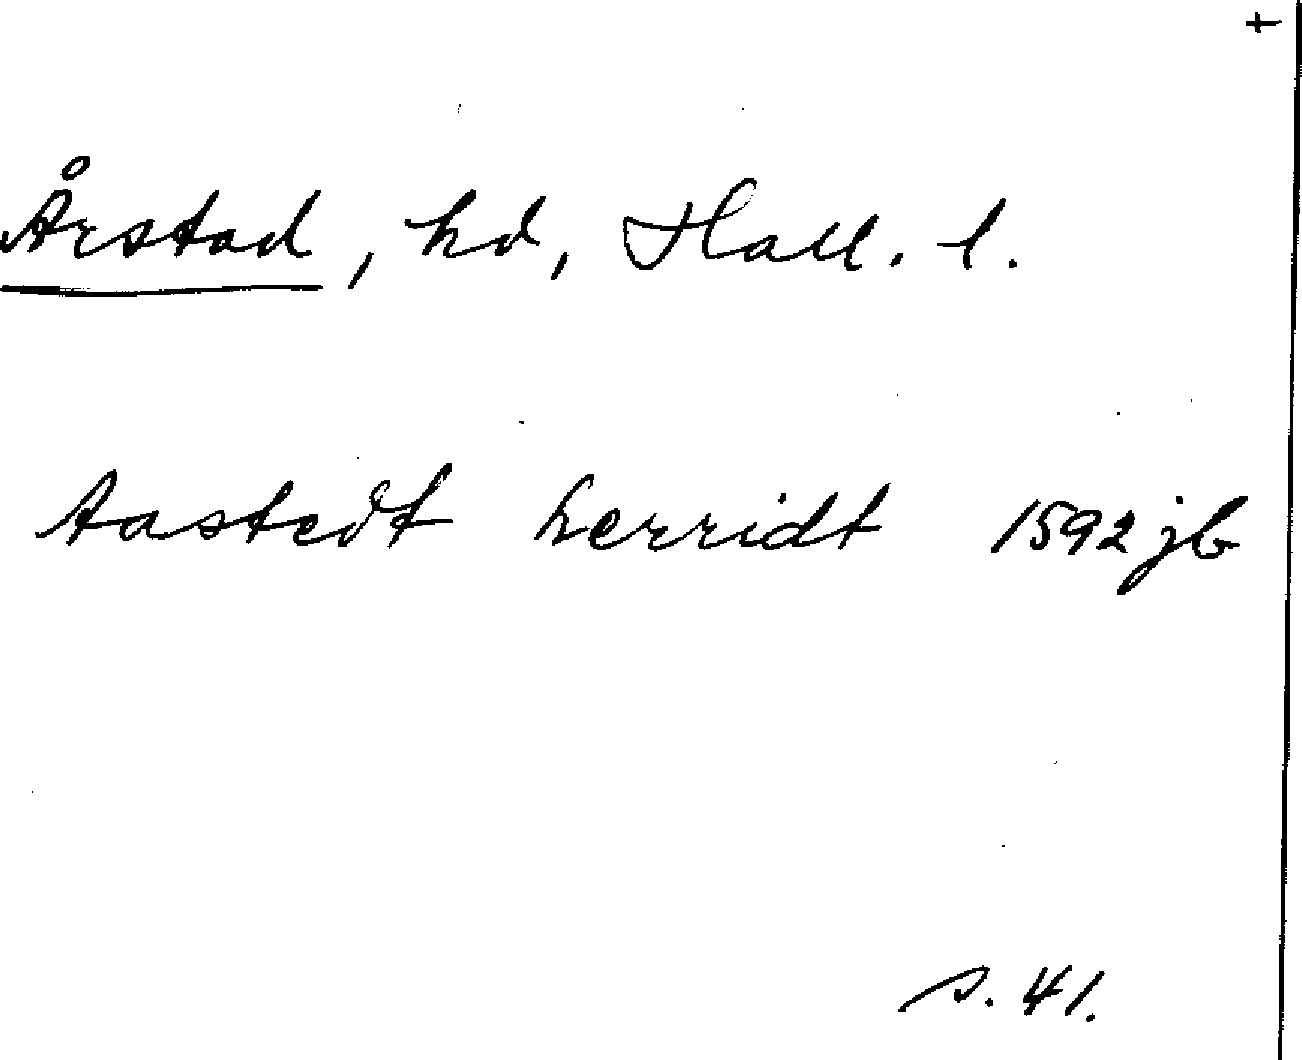 Årstad, hd, Hall. l.
Aastedt herridt 1592 jb
s. 41.